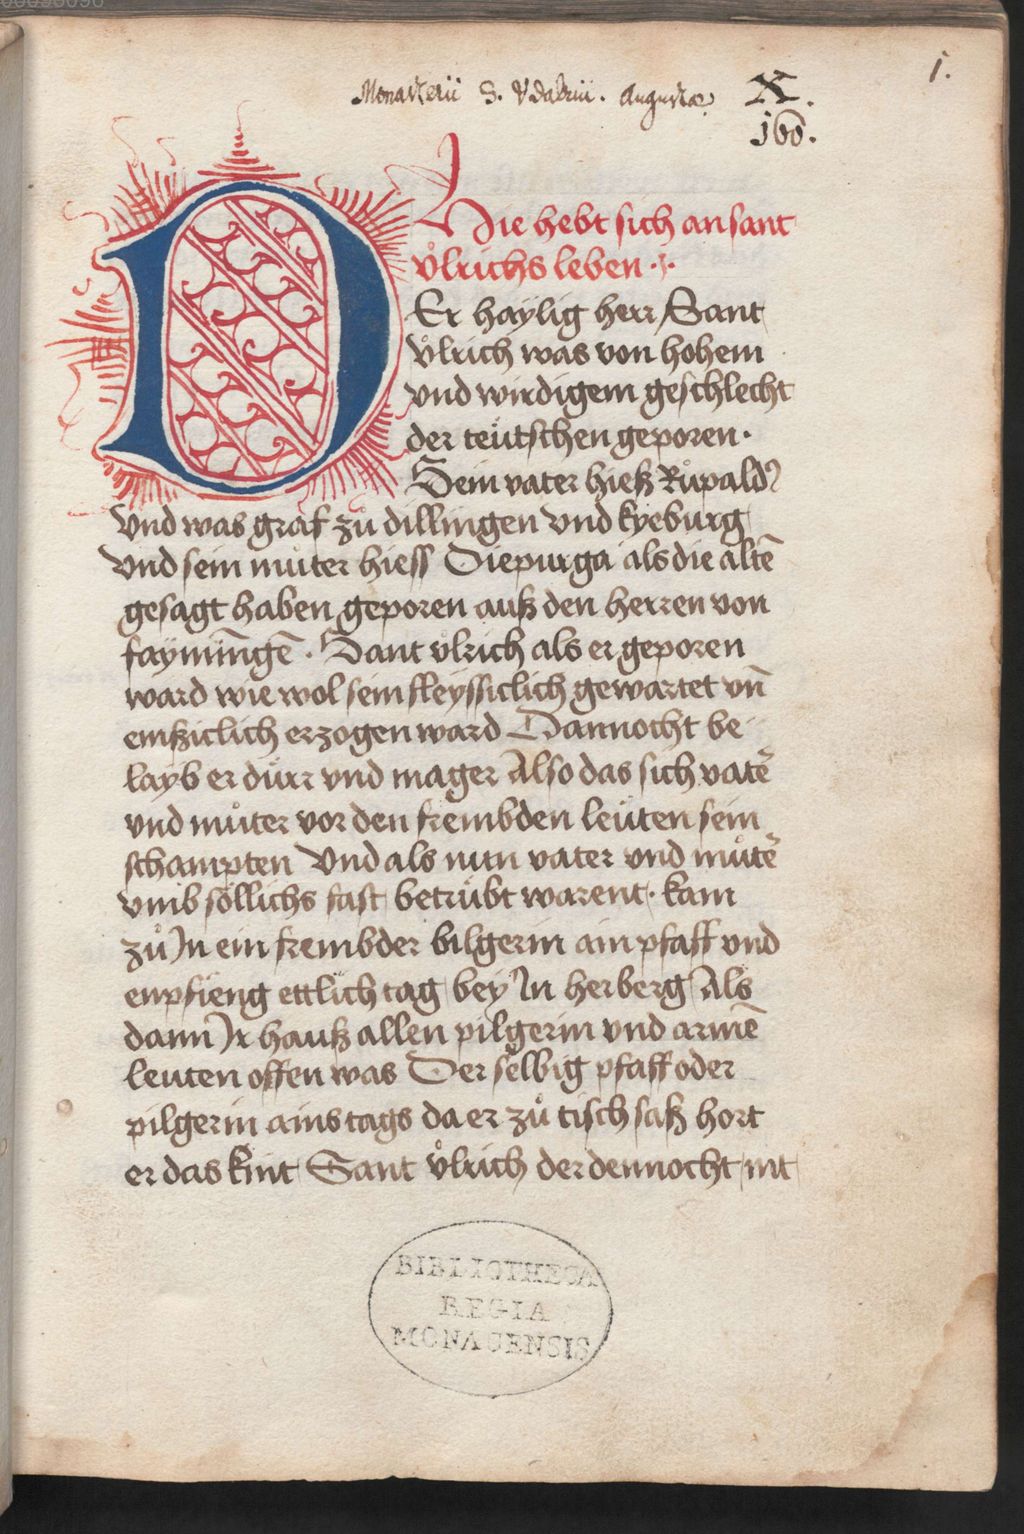 1.
Monasterii S. Vdalrici. Augustae
X.
160.
Hie hebt sich an sant
vͦlrichs leben ·:·
DEr haÿlig herr Sant
vͦlrich was von hohem
vnd wirdigem geschlecht
der teütschen geporen·
Sein vater hieß Růpald9
vnd was graf zů dillingen vnd kyeburg
vnd sein můter hiess Diepurga als die altē
gesagt haben geporen auß den herren von
faÿmīngē · Sant vͦlrich als er geporen
ward wie wol sein fleyssiclich gewartet vn̄
emßiclich erzogen ward Dannocht be
layb er dürr vnd mager Also das sich vatē
vnd můter vor den frembden leüten sein
schampten Vnd als nun vater vnd můtē
vmb söllichs fast betrübt warent· kam
zů In ein frembder bilgerin ain pfaff vnd
enpfieng ettlich tag bey In herberg Als
dann Ir hauß allen pilgerin vnd armē
leuten offen was Der selbig pfaff oder
pilgerin ains tags da er zů tisch saß hort
er das kint Sant vͦlrich der dennocht nit
BIBLIOTHECA
REGIA
MONACENSIS